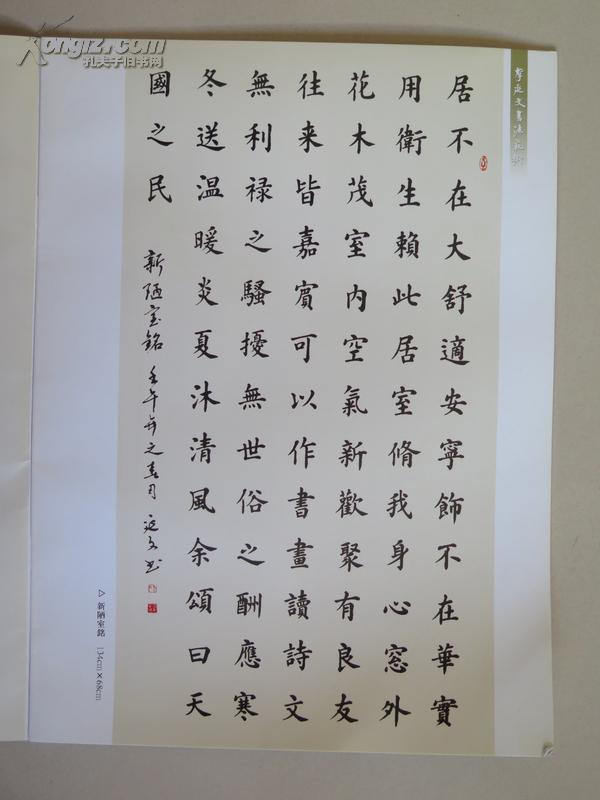 居不在大舒適安寧飾不在華實
用衛生賴此居室脩我身心窓外
花木茂室内空氣新歡聚有良友
往来皆嘉賓可以作書畫讀詩文
無利禄之騷擾無世俗之酬應寒
冬送温暖炎夏沐清風余頌曰天
國之民
新陋室銘 壬午年之春月 延文书
△ 新陋室銘 134cm×68cm
Kongfz.com
孔夫子旧书网